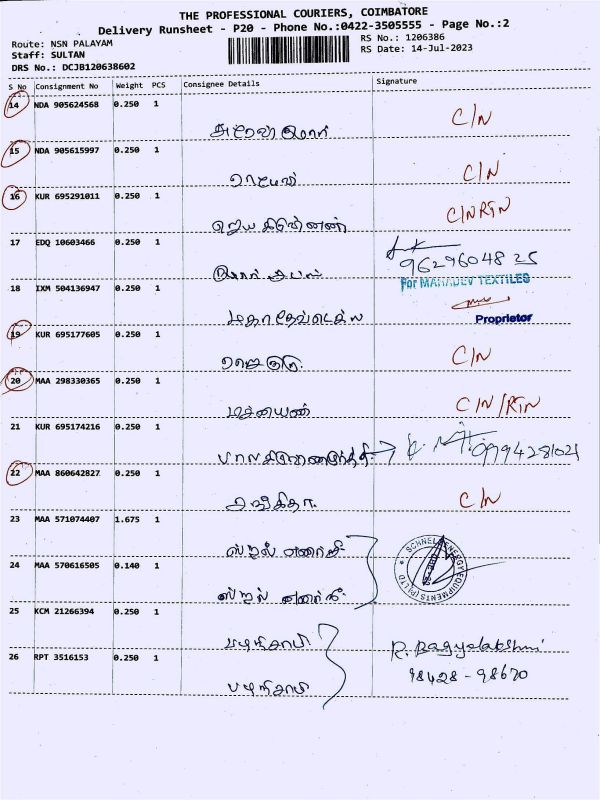 THE PROFESSIONAL COURIERS, COIMBATORE
Delivery Runsheet - P20 - Phone No.:0422-3505555 - Page No.:2
Route: NSN PALAYAM
RS No.: 1206386
Staff: SULTAN
RS Date: 14-Jul-2023
DRS No.: DCJB120638602
S No Consignment No Weight PCS Consignee Details Signature
14 NDA 905624568 0.250 1 C/N
15 NDA 905615997 0.250 1 C/N
ராமேஷ்
16 KUR 695291011 0.250 1 C/N RTN
ஜெய கிருஷ்ணன்
17 EDQ 10603466 0.250 1
9629604825
18 IXM 504136947 0.250 1 For MAHADEV TEXTILES
மகாதேவ் டெக்ஸ
Proprietor
19 KUR 695177605 0.250 1 C/N
20 MAA 298330365 0.250 1 C/N/RTN
21 KUR 695174216 0.250 1
22 MAA 860642827 0.250 1 C/N
23 MAA 571074407 1.675 1
ஸ்நல் எனர்ஜி
24 MAA 570616505 0.140 1 SCHNELL ENERGY EQUIPMENTS (P) LTD
ஸ்நல் எனர்ஜி
25 KCM 21266394 0.250 1
பழநிசாமி
R. Bagyalakshmi
26 RPT 3516153 0.250 1 98428-98670
பழநிசாமி